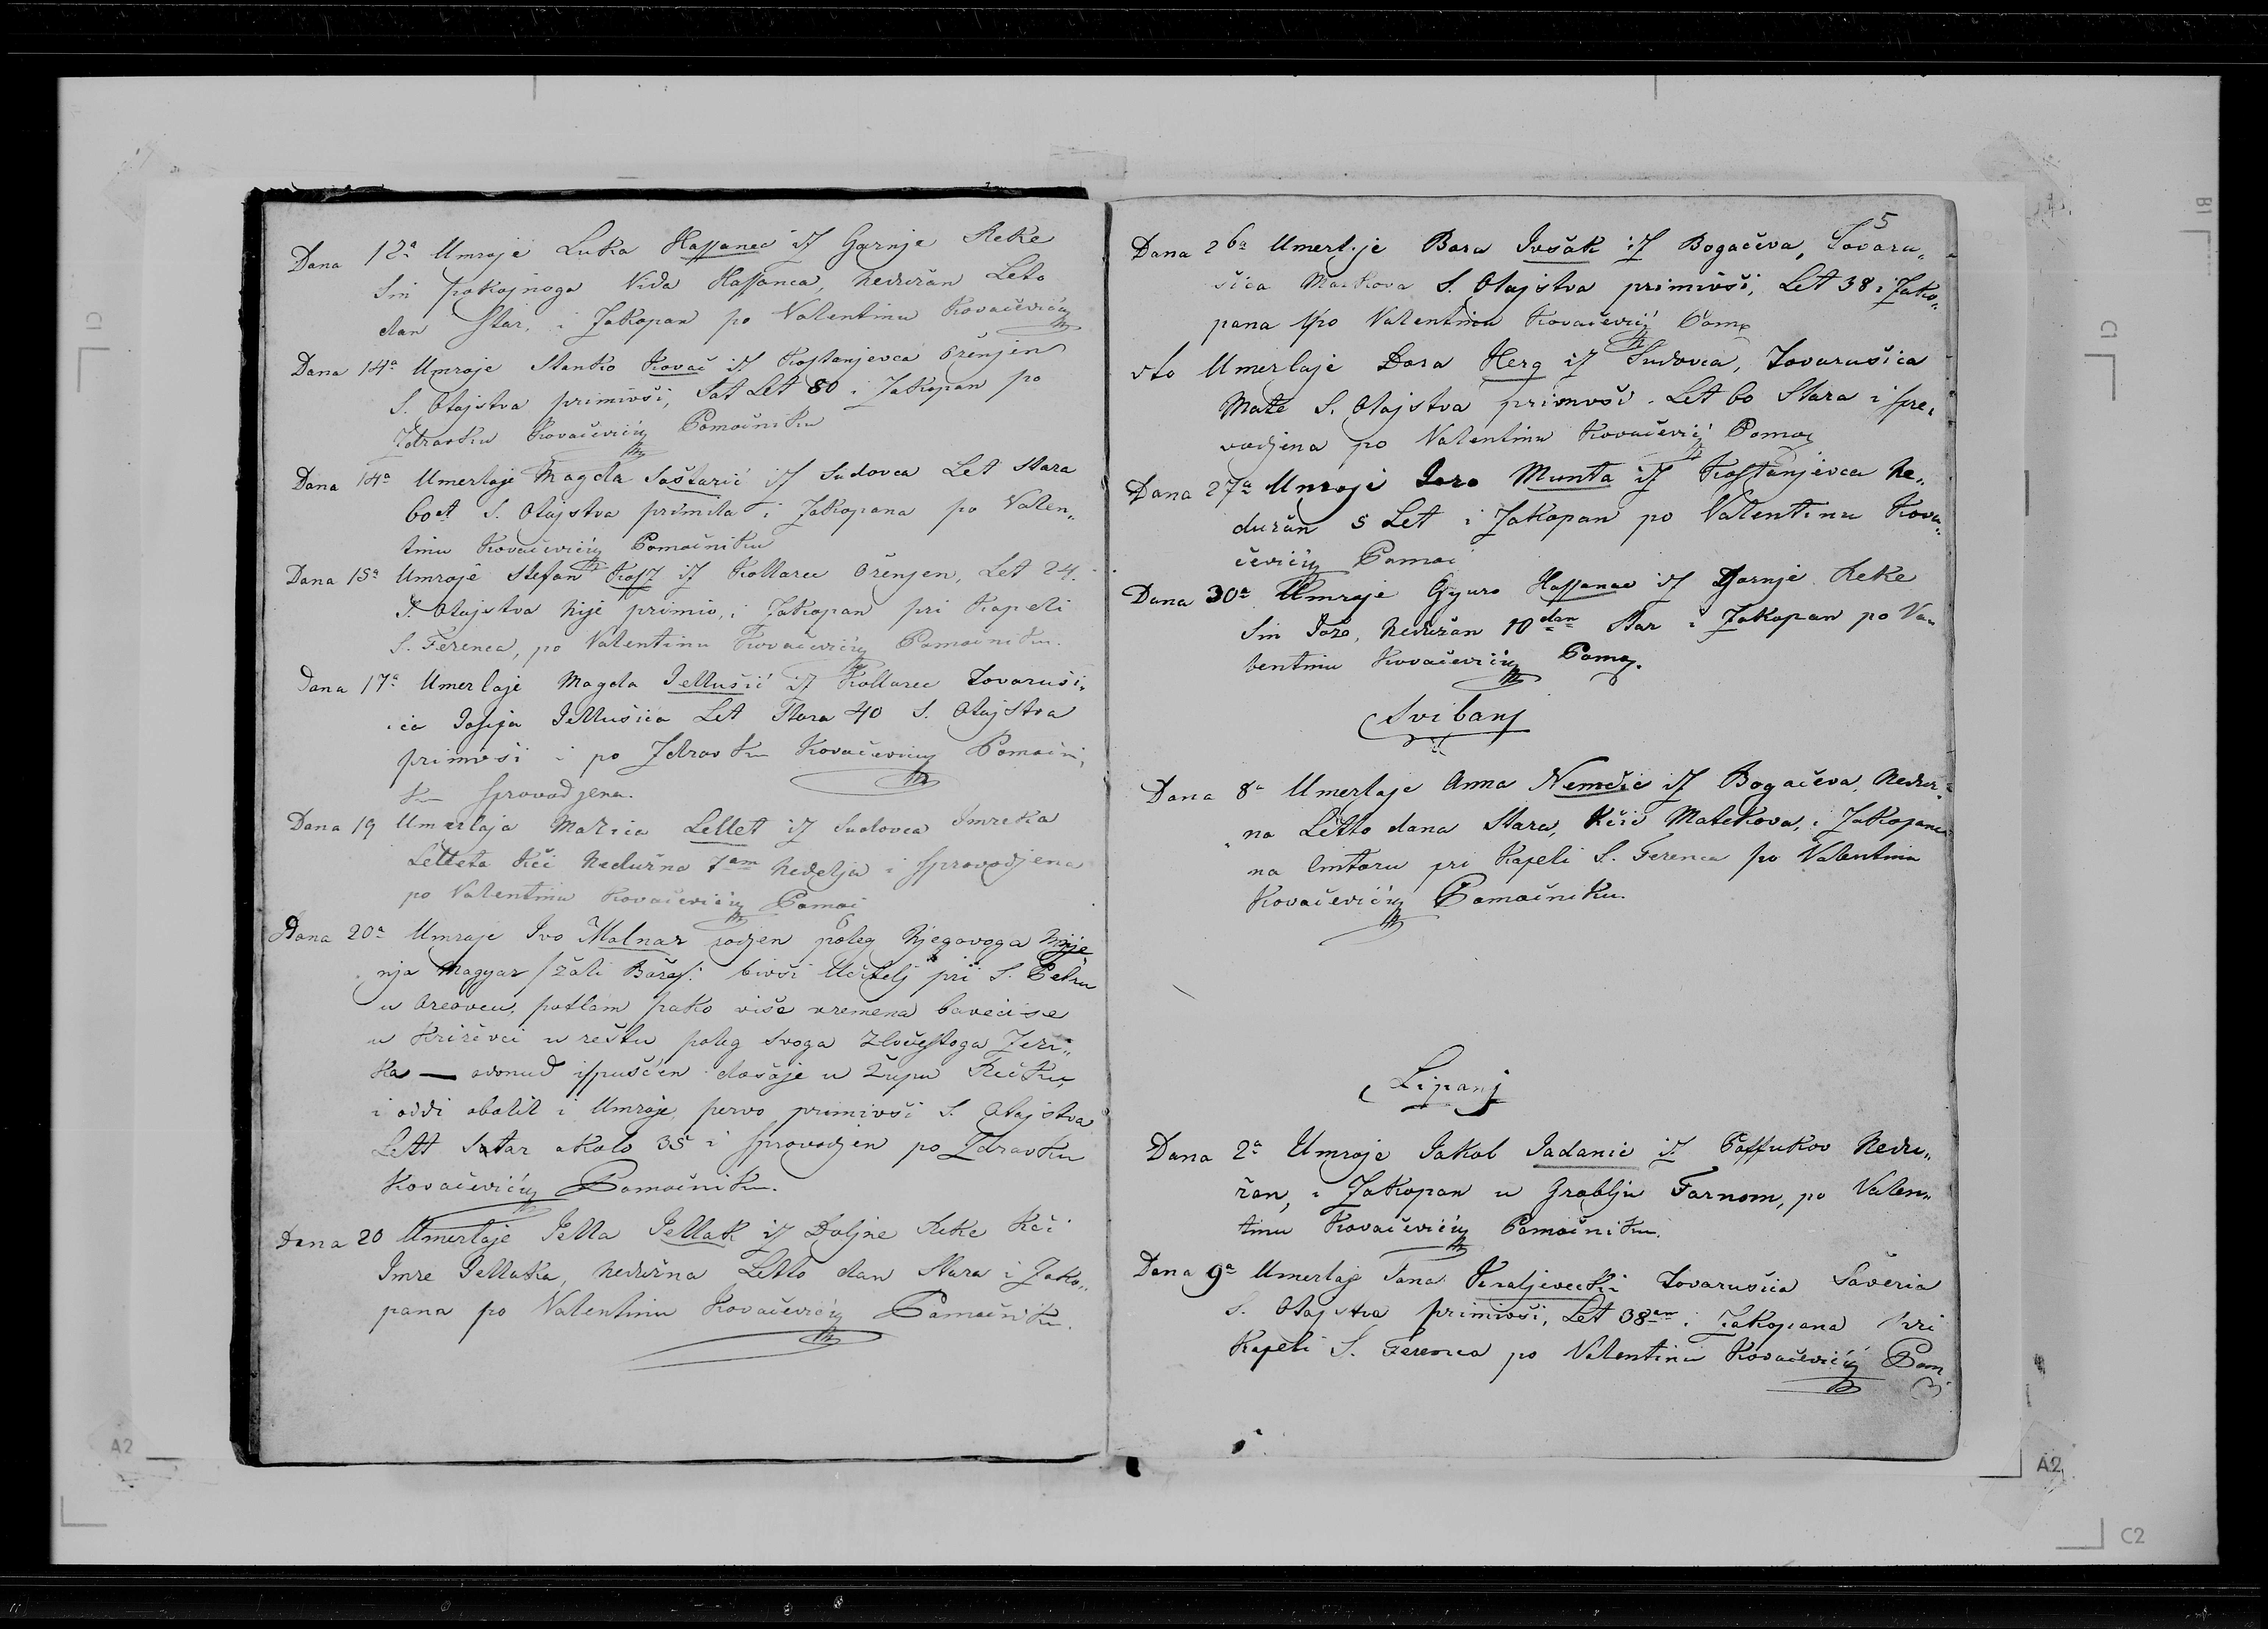 Dana 12a Umroje Luka Hassanec iz Gornje Reke
Sin pokojnoga Vida Hassanca, nedužan Leto
dan Star, i Zakopan po Valentinu Kovačeviću
Dana 14a Umroje Stanko Kovač iz Kostanjevca Oženjen
S. Otajstva primivši, Sat Let 80 i Zakopan po
Zdravku Kovačeviću Pomoćniku
Dana 14a Umerlaje Magda Soštarić iz Sudovca Let Stara
60et S. Otajstva primila i Zakopana po Valen„
tinu Kovačeviću Pomoćniku
Dana 15a Umroje Stefan iz Kollarec Oženjen, Let 24.
S. Otajstva nije primio, i Zakopan pri Kapeli
S. Ferenca, po Valentinu Kovačeviću Pomoćniku.
Dana 17a Umerlaje Magda Jellušić iz Kollarec Tovaruši„
ca Josipa Jellušića Let Stara 40 S. Otajstva
primivši i po Zdravku Kovačeviću Pomoćni„
ku Sprovodjena.
Dana 19 Umerlaja Marica Lellet iz Sudovca Imreka
Letteta kći nedužna 7am nedelja i Sprovodjena
po Valentinu Kovačeviću Pomoć
Dana 20a Umroje Ivo Molnar rodjen poleg njegovoga
nja Magyar bivši Učitelj pri S. Petru
u Oreovcu, potlam pako više vremena baveći se
u Križevci u reštu poleg svoga zločestoga Jezi„
ka — odonud ispušćen došaje u Župu Rečku,
i ovdi obolil i Umroje, pervo primivši S. Otajstva
Lett Satar okolo 35 i Sprovodjen po Zdravku
Kovačeviću Pomoćniku.
Dana 20 Umerlaje Jella Jellak iz Doljne Reke kći
Imre Jellaka, nedužna Letto dan Stara i Zako„
pana po Valentinu Kovačeviću Pomoćniku.
5
Dana 26a Umerlaje Bara Ivšak iz Bogačeva, Tovaru„
šica Matkova S. Otajstva primivši, Let 38 i Zako„
pana po Valentinu Kovačeviću Pom
sto Umerlaje Dora Herg iz Sudovca, Tovarušica
Mate S. Otajstva primivši. Let 60 Stara i spre„
vodjena po Valentinu Kovačeviću Pomoć
Dana 27a Umroje Joro Munta iz Kostanjevca ne„
dužan 5 Let i Zakopan po Valentinu Kova„
čeviću Pomoć
Dana 30a Umroje Gyuro Hassanac iz Gornje Reke
Sin Jože, nedužan 10dan Star i Zakopan po Va„
lentinu Kovačeviću Pomoć.
Svibanj
Dana 8a Umerlaje Anna Nemčić iz Bogačeva, neduž„
na Letto dana Stara, kćić Matekova, i Zakopana
na Cintoru pri Kapeli S. Ferenca po Valentinu
Kovačeviću Pomoćniku.
Lipanj
Dana 2a Umroje Jakob Jadanić iz Possukov nedu„
žan, i Zakopan u Groblju Farnom, po Valen„
tinu Kovačeviću Pomoćniku.
Dana 9a Umerlaje Jana Kraljevečki Tovarušica Saveria
S. Otajstva primivši, Let 38am i Zakopana pri
Kapeli S. Ferenca po Valentinu Kovačeviću Pom
C1
A2
B1
C1
A2
C2